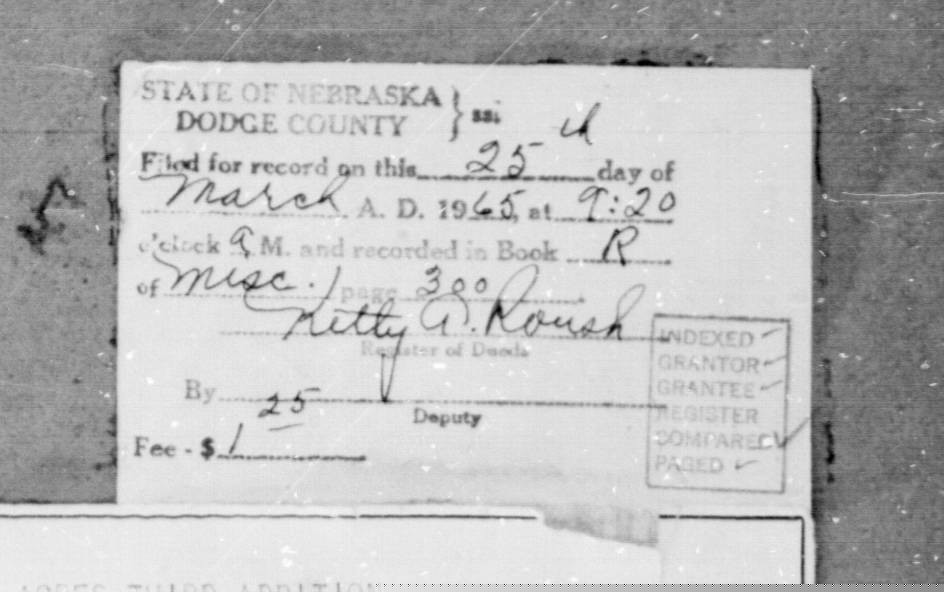 STATE OF NEBRASKA } ss.
DODGE COUNTY
Filed for record on this 25th day of
March A. D. 1965, at 9:20
o'clock A. M. and recorded in Book R
of Misc. page 300
Kitty A. Roush
Register of Deeds
By
Deputy
Fee - $ 1 25
INDEXED ✓
GRANTOR ✓
GRANTEE ✓
REGISTER
COMPARED ✓
PAGED ✓
ACRES THIRD ADDITION